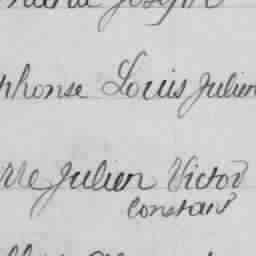 Maria Joseph
phonse Louis Julien
rre Julien Victor
Constant